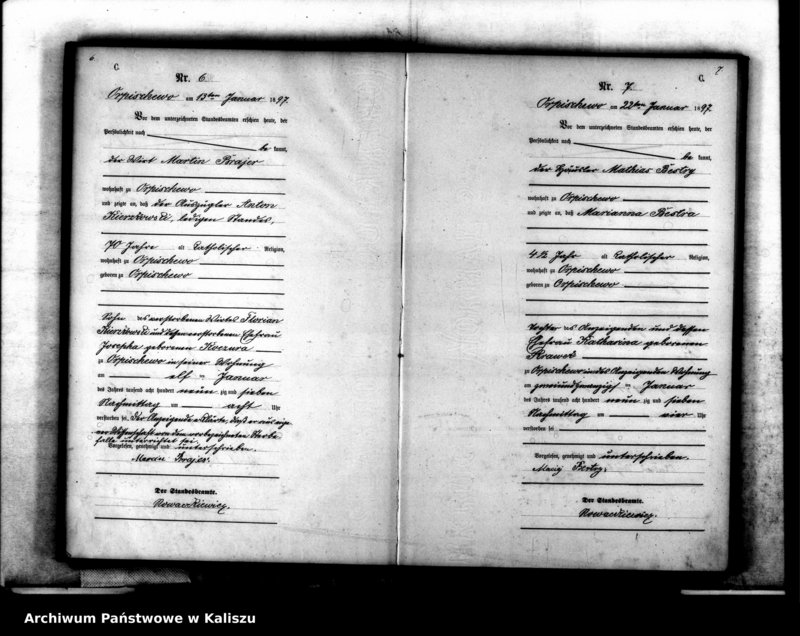 6.
C.
Nr. 6
Orpischewo am 13ten Januar 1897.
Vor dem unterzeichneten Standesbeamten erschien heute, der
Persönlichkeit nach
be kannt,
der Wirt Martin Brajer
wohnhaft zu Orpischewo
und zeigte an, daß der Auszügler Anton
ledigen Standes,
70 Jahre alt katholischer Religion,
wohnhaft zu Orpischewo
geboren zu Orpischewo
Sohn des verstorbenen Wirts Florian
und verstorbenen Ehefrau
Josepha geborenen Koczura
zu Orpischewo in seiner Wohnung
am elf ten Januar
des Jahres tausend acht hundert neun zig und sieben
Nachmittag um acht Uhr
verstorben sei. Der Anzeigende erklärte, daß er aus eige
ner Wissenschaft von dem vorbezeichneten Sterbe
falle unterrichtet sei.
Vorgelesen, genehmigt und unterschrieben.
Marcin Brajer.
Der Standesbeamte.
Nowackiewicz.
7.
C.
Nr. 7
Orpischewo am 22ten Januar 1897
Vor dem unterzeichneten Standesbeamten erschien heute, der
Persönlichkeit nach
be kannt,
der Häusler Mathias Bestry
wohnhaft zu Orpischewo
und zeigte an, daß Marianna Bestra
4 1/2 Jahr alt katholischer Religion,
wohnhaft zu Orpischewo
geboren zu Orpischewo
Tochter des Anzeigenden und dessen
Ehefrau Katharina geborenen
Krawek
zu Orpischewo in des Anzeigenden Wohnung
am zweiundzwanzigst en Januar
des Jahres tausend acht hundert neun zig und sieben
Nachmittag um vier Uhr
verstorben sei
Vorgelesen, genehmigt und unterschrieben.
Maciej Bestry.
Der Standesbeamte.
Nowackiewicz.
Archiwum Państwowe w Kaliszu